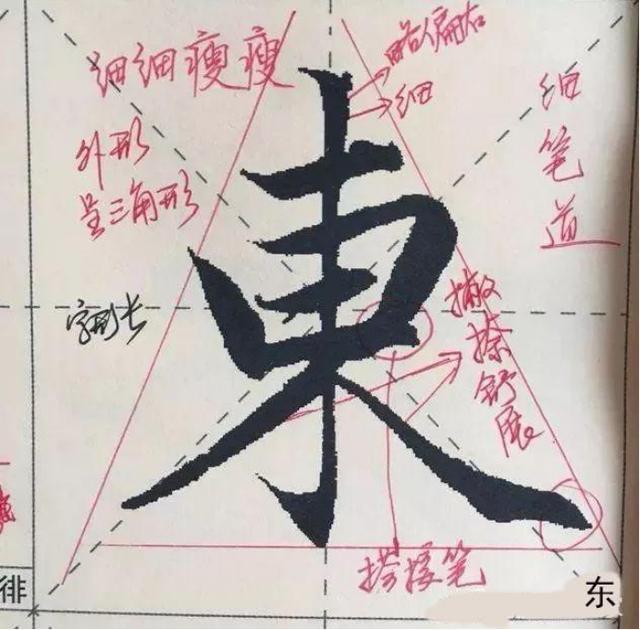 细细瘦瘦
外形
呈三角形
字形长
略偏右
细
细笔道
撇捺舒展
東
搭接笔
徘
东